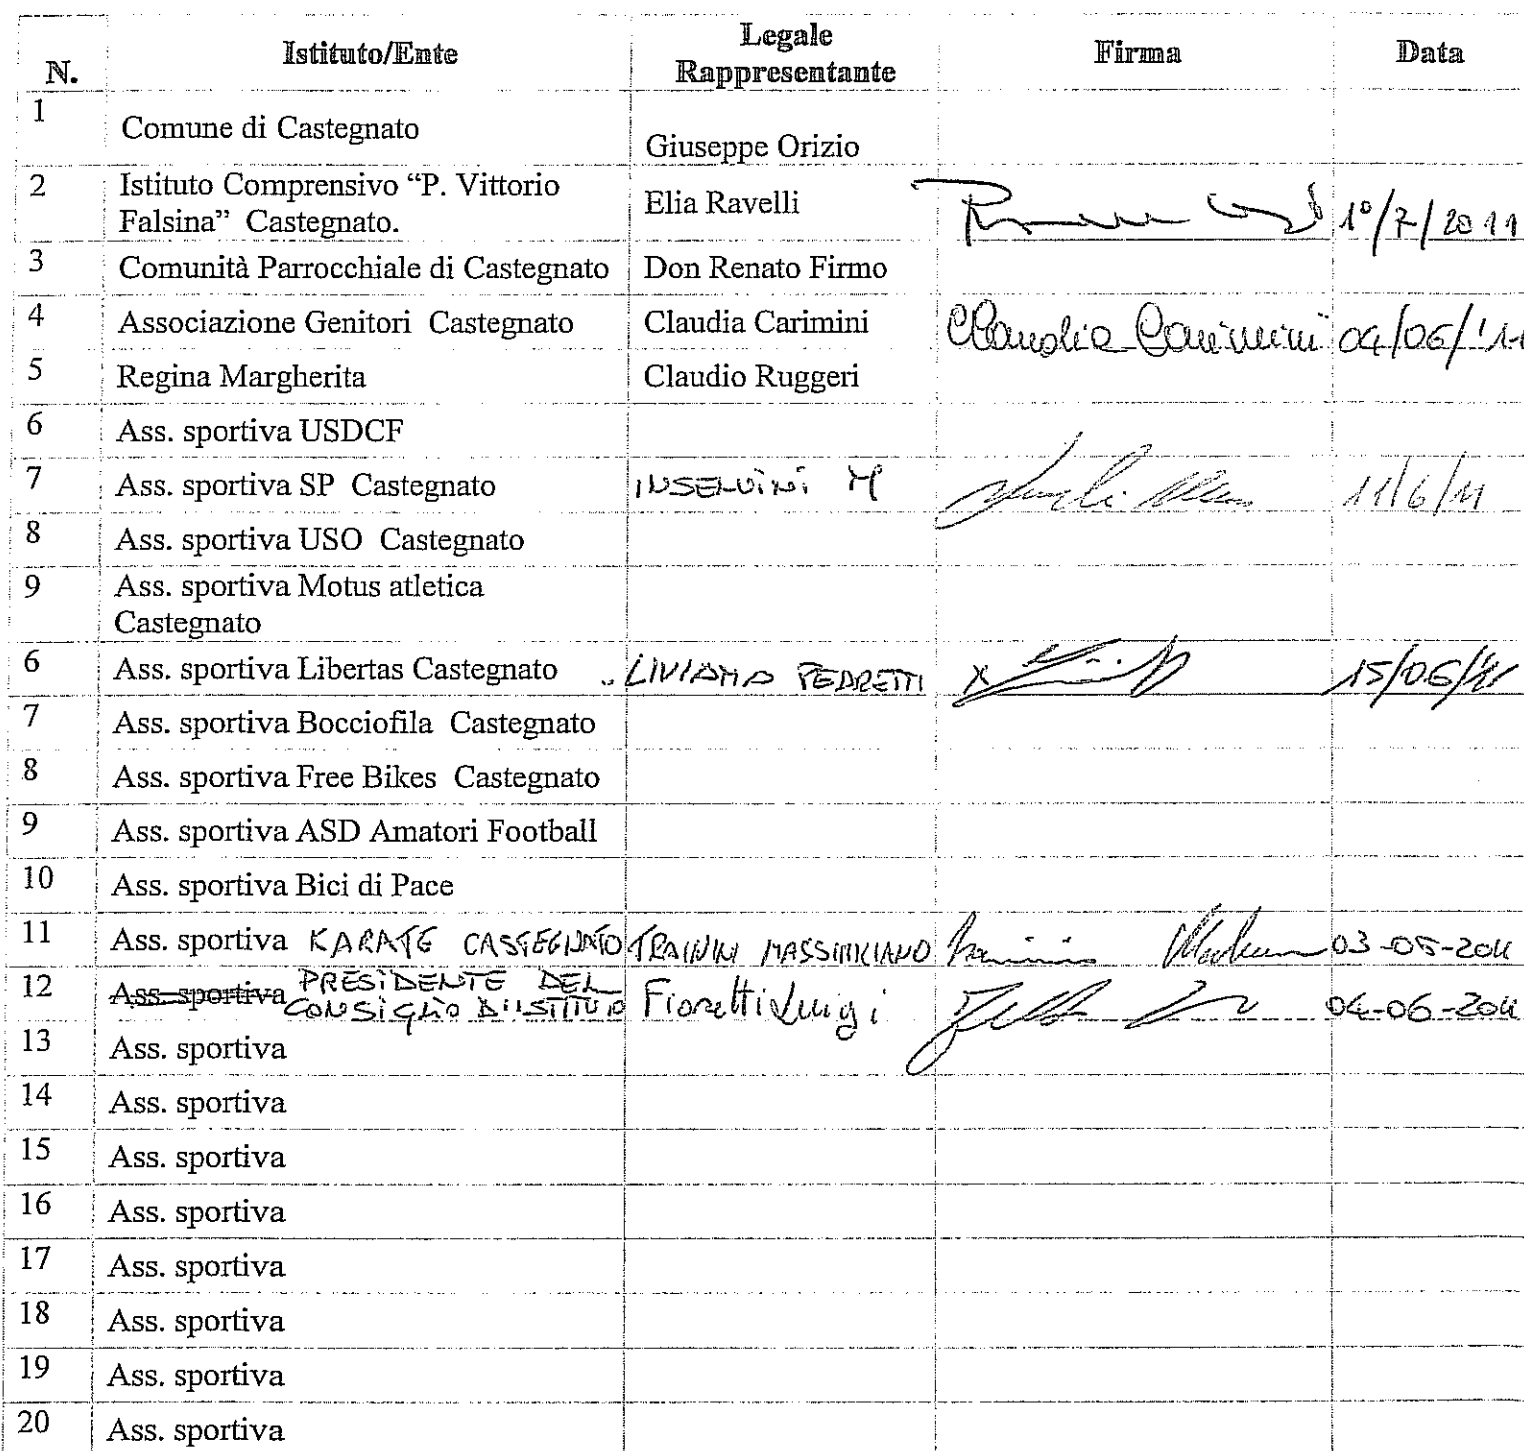 N. Istituto/Ente Legale Rappresentante Firma Data
1 Comune di Castegnato Giuseppe Orizio
2 Istituto Comprensivo “P. Vittorio Falsina” Castegnato. Elia Ravelli 1°/7/2011
3 Comunità Parrocchiale di Castegnato Don Renato Firmo
4 Associazione Genitori Castegnato Claudia Carimini Claudia Carimini 04/06/'11
5 Regina Margherita Claudio Ruggeri
6 Ass. sportiva USDCF
7 Ass. sportiva SP Castegnato INSELVINI M 11/6/11
8 Ass. sportiva USO Castegnato
9 Ass. sportiva Motus atletica Castegnato
6 Ass. sportiva Libertas Castegnato LIVIANA PEDRETTI X 15/06/11
7 Ass. sportiva Bocciofila Castegnato
8 Ass. sportiva Free Bikes Castegnato
9 Ass. sportiva ASD Amatori Football
10 Ass. sportiva Bici di Pace
11 Ass. sportiva KARATE CASTEGNATO TRAININI MASSIMILIANO 03-05-2011
12 Ass. sportiva PRESIDENTE DEL CONSIGLIO D'ISTITUTO Fioretti Luigi 04-06-2011
13 Ass. sportiva
14 Ass. sportiva
15 Ass. sportiva
16 Ass. sportiva
17 Ass. sportiva
18 Ass. sportiva
19 Ass. sportiva
20 Ass. sportiva